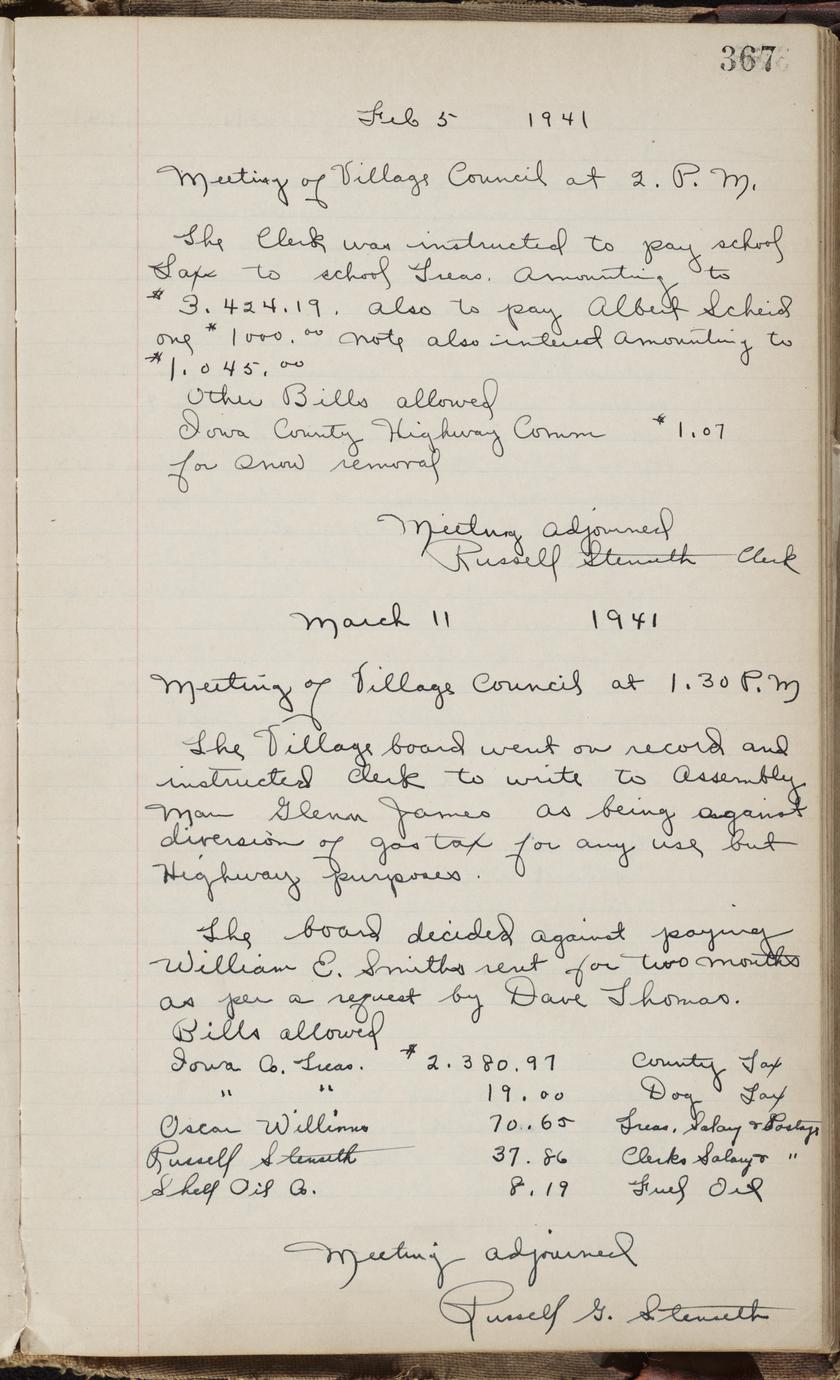 367
Feb 5 1941
Meeting of Village Council at 2. P. M.
The Clerk was instructed to pay school
Tax to school Treas. Amounting to
$ 3.424.19. also to pay Albert Scheid
one $ 1000.00 note also interest Amounting to
$1.045.00
Other Bills allowed
Iowa County Highway Comm $1.07
for snow removal
Meeting adjourned
Russell Stenseth Clerk
March 11 1941
Meeting of Village Council at 1.30 P.M
The Village board went on record and
instructed Clerk to write to Assembly
man Glenn James as being against
diversion of gas tax for any use but
Highway purposes.
The board decided against paying
William E. Smiths rent for two months
as per a request by Dave Thomas.
Bills allowed
Iowa Co. Treas. $2.380.97 County Tax
" " 19.00 Dog Tax
Oscar Williams 70.65 Treas. Salary & Postage
Russell Stenseth 37.86 Clerks Salary & "
Shell Oil Co. 8.19 Fuel Oil
Meeting adjourned
Russell G. Stenseth